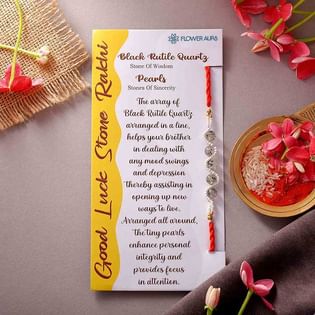 FLOWER AURA
Good Luck Stone Rakhi
Black Rutile Quartz
Stone Of Wisdom
Pearls
Stones Of Sincerity
The array of
Black Rutile Quartz
arranged in a line,
helps your brother
in dealing with
any mood swings
and depression
thereby assisting in
opening up new
ways to live.
Arranged all around,
The tiny pearls
enhance personal
integrity and
provides focus
in attention.